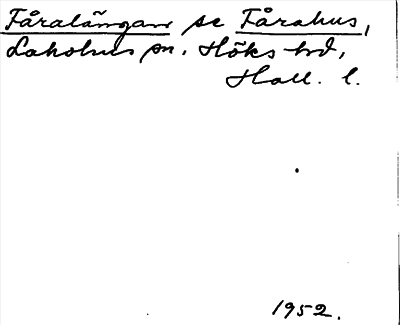 Fåralängan se Fårahus,
Laholms sn. Höks hd,
Hall. l.
1952.